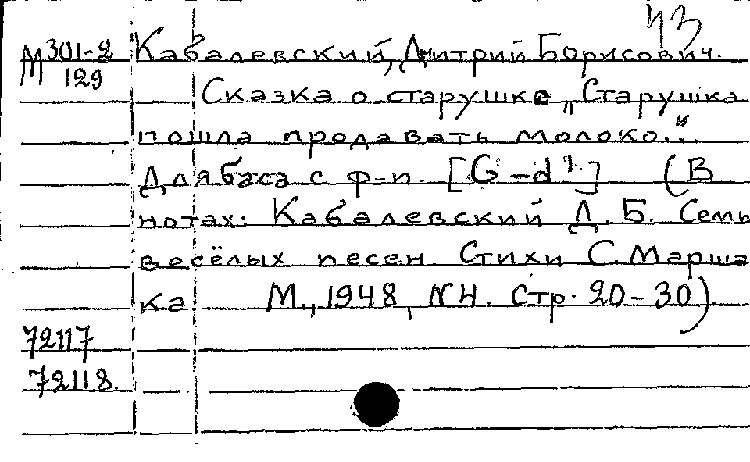 43
М 301-2 Кабалевский, Дмитрий Борисович.
129
Сказка о старушке „Старушка
пошла продавать молоко..."
Для баса с ф-п. [G-d¹.] (В
нотах: Кабалевский Д.Б. Семь
весёлых песен. Стихи С. Марша
ка М., 1948, NН. Стр. 20-30)
72117
72118.